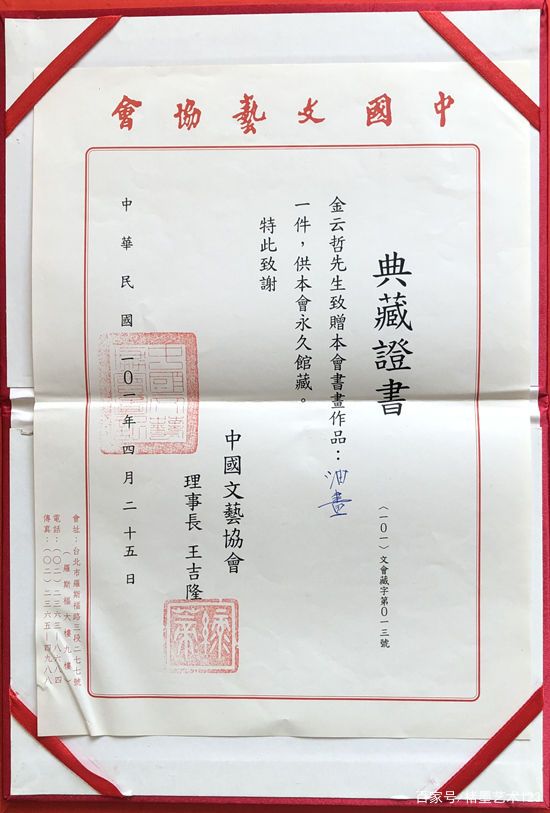 中國文藝協會
典藏證書
(一0一)文會藏字第0一三號
金云哲先生致贈本會書畫作品：油畫
一件，供本會永久館藏。
特此致謝
中國文藝協會
理事長 王吉隆
中華民國一0一年四月二十五日
會址：台北市羅斯福路三段二七七號
(羅斯福大樓九樓)
電話：(0二)二三六三—八六八四
傳真：(0二)二三六五—四九八八
百家号/格墨艺术123